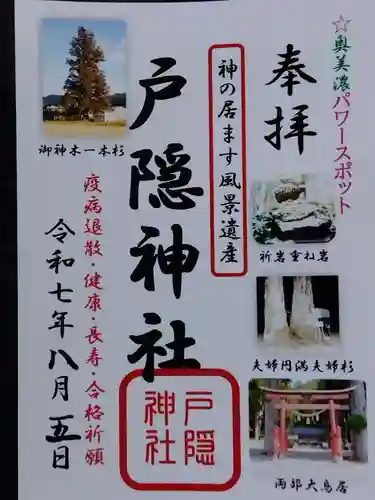 ☆奥美濃パワースポット
奉拝
神の居ます風景遺産
戸隠神社
戸隠
神社
御神木一本杉
疫病退散・健康・長寿・合格祈願
令和七年八月五日
祈岩重ね岩
夫婦円満夫婦杉
両部大鳥居